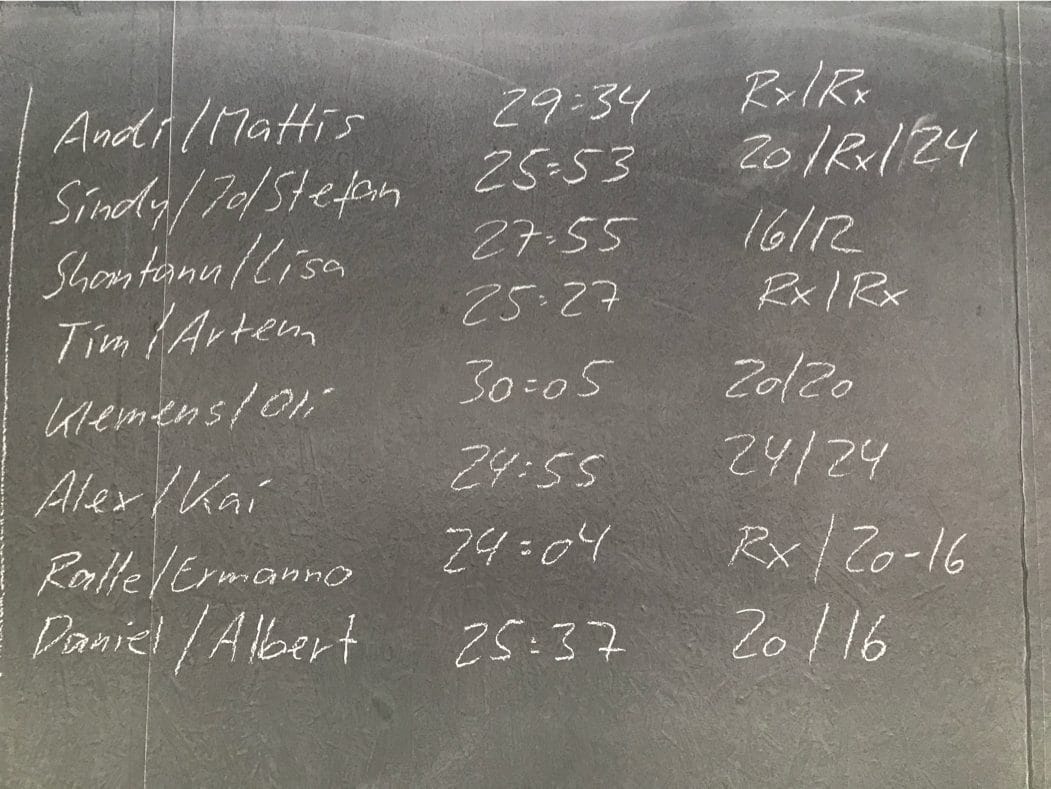 Andi/Mattis 29:34 Rx/Rx
Sindy/Jo/Stefan 25:53 20/Rx/24
Shantanu/Lisa 27:55 16/12
Tim/Artem 25:27 Rx/Rx
Klemens/Oli 30:05 20/20
Alex/Kai 24:55 24/24
Ralle/Ermanno 24:04 Rx/20-16
Daniel/Albert 25:37 20/16